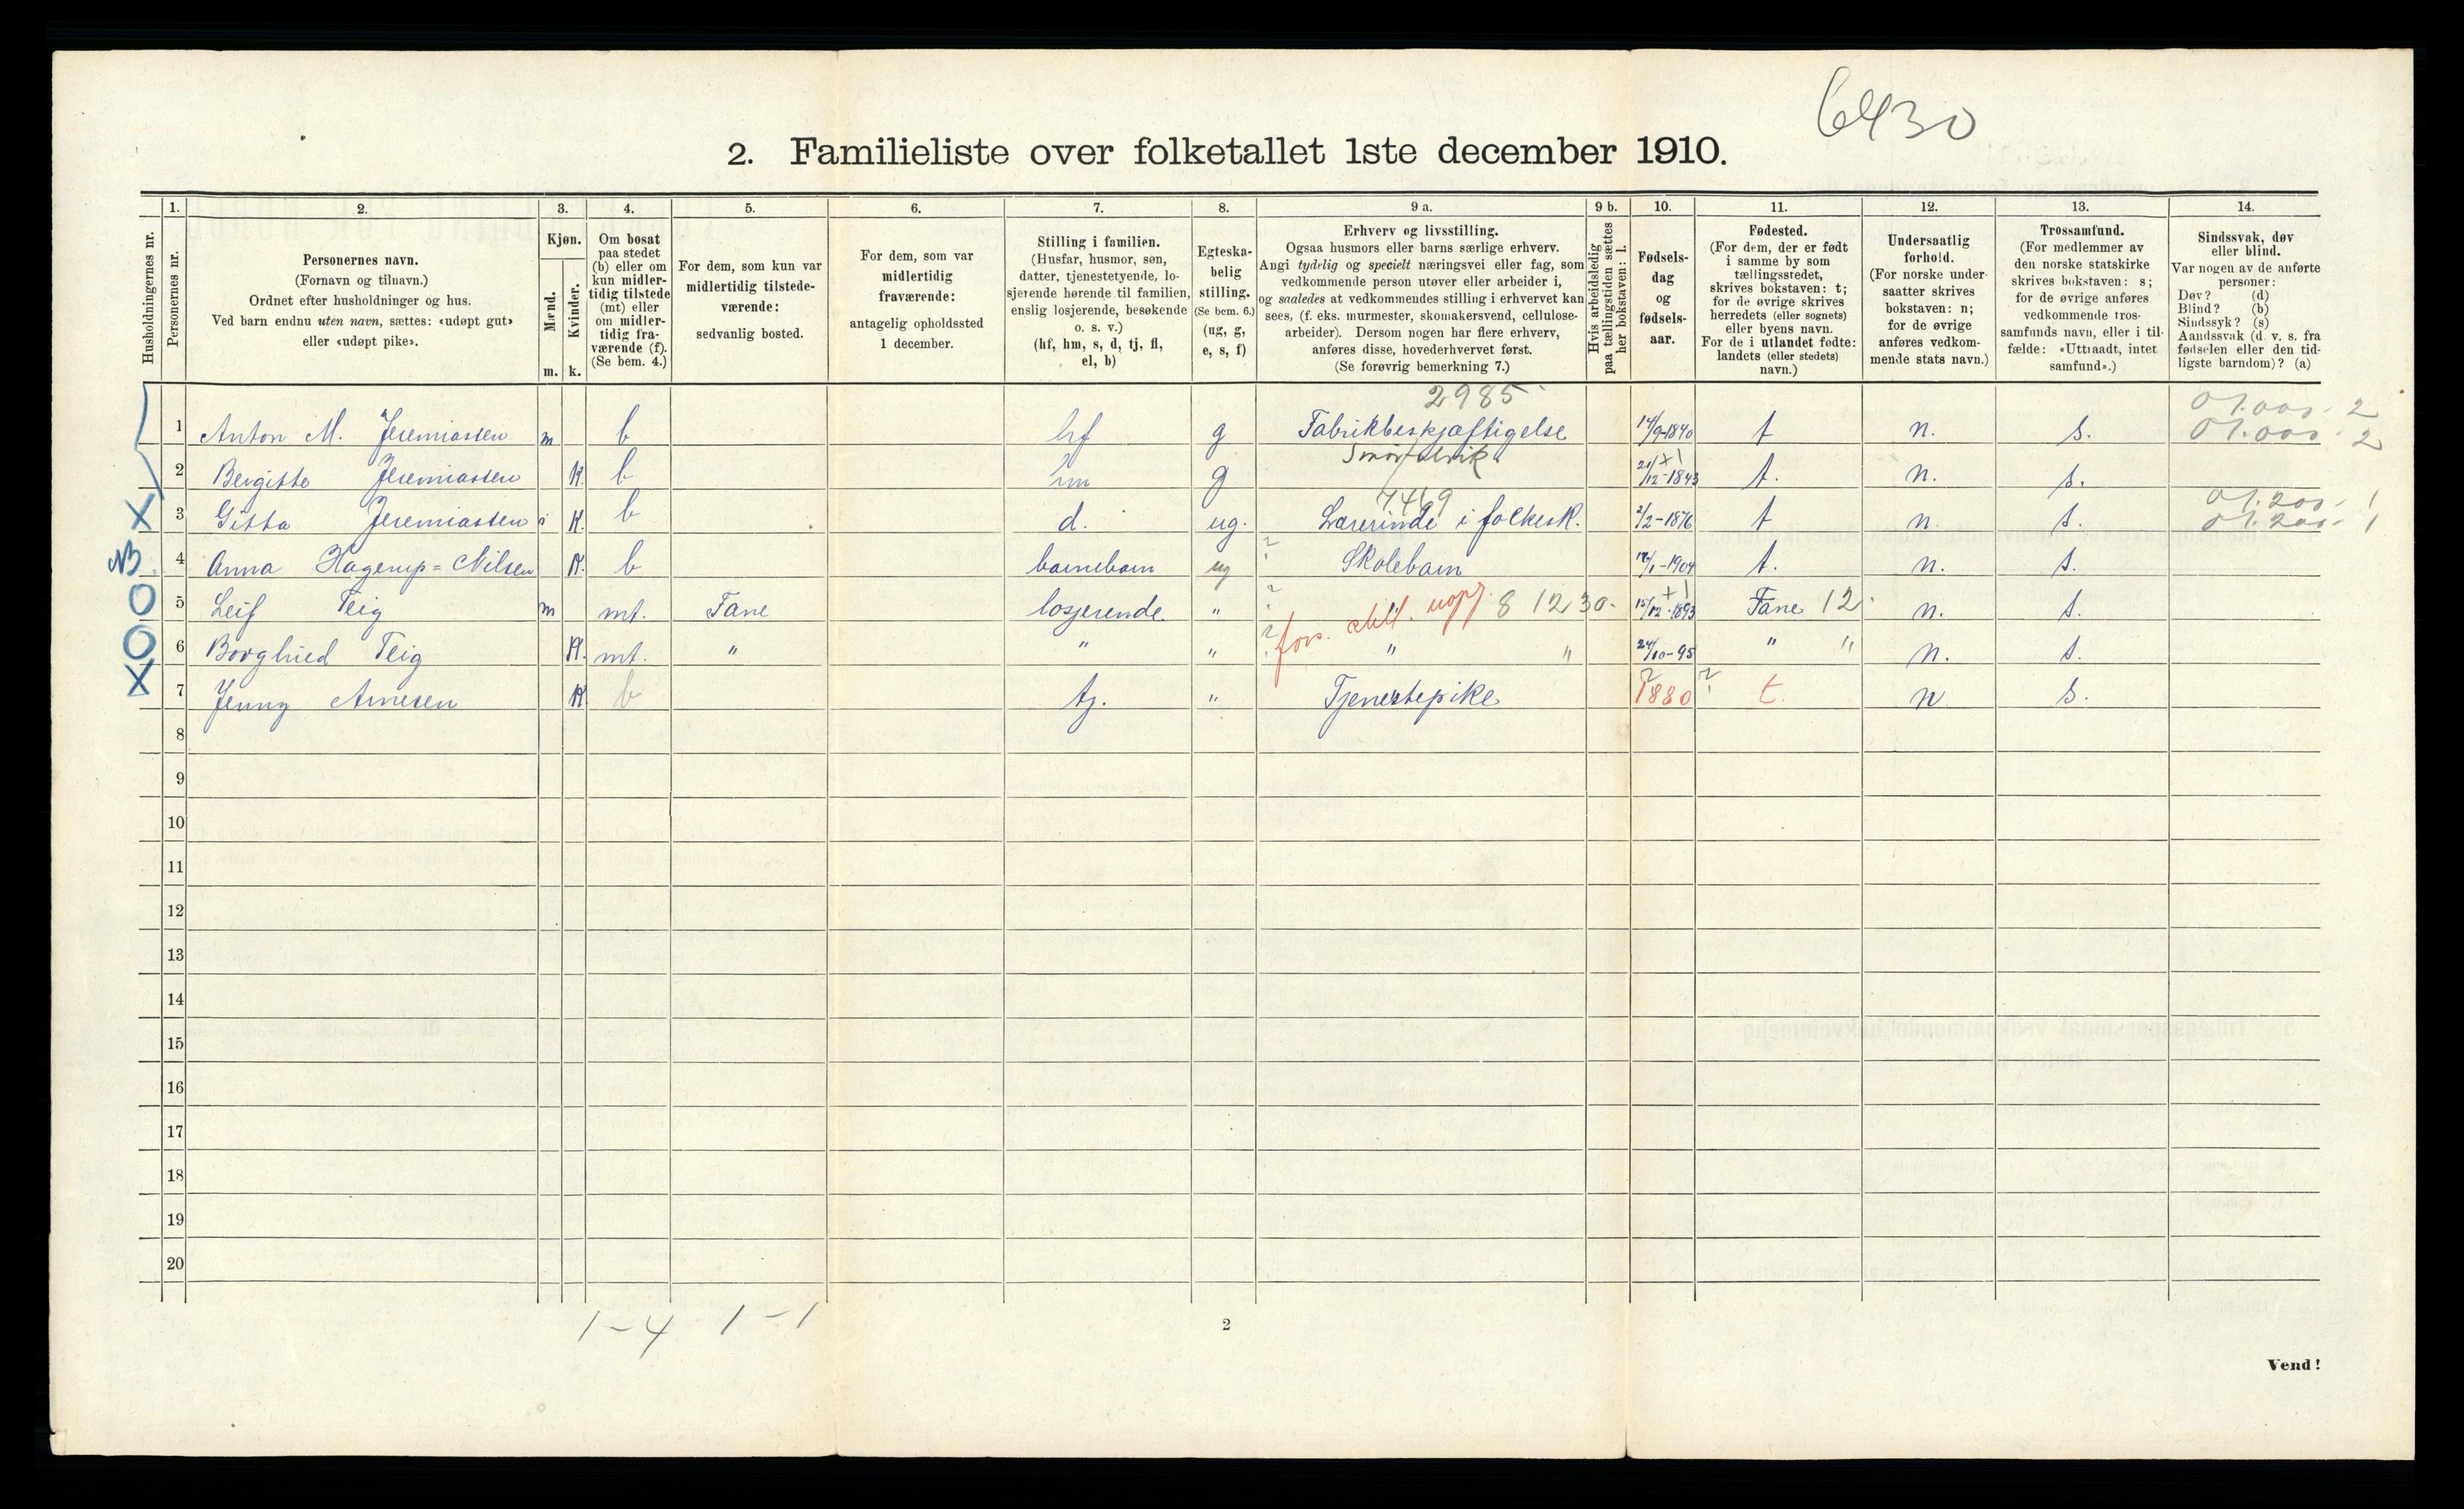 6430
2. Familieliste over folketallet 1ste december 1910.
1. 2. 3. 4. 5. 6. 7. 8. 9 a. 9 b. 10. 11. 12. 13. 14.
Husholdningernes nr.
Personernes nr.
Personernes navn.
(Fornavn og tilnavn.)
Ordnet efter husholdninger og hus.
Ved barn endnu uten navn, sættes: «udøpt gut»
eller «udøpt pike».
Kjøn.
Mænd.
Kvinder.
m. k.
Om bosat
paa stedet
(b) eller om
kun midler-
tidig tilstede
(mt) eller
om midler-
tidig fra-
værende (f).
(Se bem. 4.)
For dem, som kun var
midlertidig tilstede-
værende:
sedvanlig bosted.
For dem, som var
midlertidig
fraværende:
antagelig opholdssted
1 december.
Stilling i familien.
(Husfar, husmor, søn,
datter, tjenestetyende, lo-
sjerende hørende til familien,
enslig losjerende, besøkende
o. s. v.)
(hf, hm, s, d, tj, fl,
el, b)
Egteska-
belig
stilling.
(Se bem. 6.)
(ug, g,
e, s, f)
Erhverv og livsstilling.
Ogsaa husmors eller barns særlige erhverv.
Angi tydelig og specielt næringsvei eller fag, som
vedkommende person utøver eller arbeider i,
og saaledes at vedkommendes stilling i erhvervet kan
sees, (f. eks. murmester, skomakersvend, cellulose-
arbeider). Dersom nogen har flere erhverv,
anføres disse, hovederhvervet først.
(Se forøvrig bemerkning 7.)
Hvis arbeidsledig
paa tællingstiden sættes
her bokstaven: l.
Fødsels-
dag
og
fødsels-
aar.
Fødested.
(For dem, der er født
i samme by som
tællingsstedet,
skrives bokstaven: t;
for de øvrige skrives
herredets (eller sognets)
eller byens navn.
For de i utlandet fødte:
landets (eller stedets)
navn.)
Undersaatlig
forhold.
(For norske under-
saatter skrives
bokstaven: n;
for de øvrige
anføres vedkom-
mende stats navn.)
Trossamfund.
(For medlemmer av
den norske statskirke
skrives bokstaven: s;
for de øvrige anføres
vedkommende tros-
samfunds navn, eller i til-
fælde: «Uttraadt, intet
samfund».)
Sindssvak, døv
eller blind.
Var nogen av de anførte
personer:
Døv? (d)
Blind? (b)
Sindssyk? (s)
Aandssvak (d. v. s. fra
fødselen eller den tid-
ligste barndom)? (a)
2985
01.000 - 2
1 Anton M. Jeremiassen m b hf g Fabrikbeskjæftigelse 14/9-1840 t n. s. 01.000 - 2
Smørfabrik
2 Bergitte Jeremiassen K. b hm g 21/12-1843 t. n. s.
7469 01.200 - 1
X 3 Gitta Jeremiassen K. b d. ug. Lærerinde i folkesk. 2/2-1876 t n. s. 01.200 - 1
NB. 4 Anna Hagerup=Nilsen K. b barnebarn ug ? Skolebarn 1904 t. n. s.
O 5 Leif Teig m mt. Fane losjerende " ? fors. uopg. 8 1230. 15/12-1893 Fane 12. n. s.
O 6 Borghied Teig K. mt. " " " ? " " 24/10-95 " " n. s.
X 7 Jenny Arnesen K b tj. " Tjenestepike 1880 ? t. n s.
8
9
10
11
12
13
14
15
16
17
18
19
20
1-4 1-1
2
Vend!